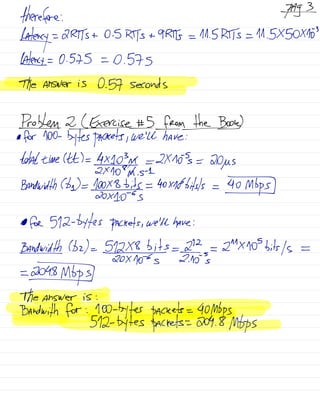 Pag 3
therefore:
Latency = 2RTTs + 0.5 RTTs + 9RTTs = 11.5 RTTs = 11.5X50X10³
Latency = 0.575 = 0.575
The answer is 0.57 seconds
Problem 2 (Exercise #5 from the Book)
• for 100-bytes packets, we'll have:
total time (tt) = 4x10³m / 2x10⁸m.s-1 = 2x10⁻⁵s = 20μs
Bandwidth (b1) = 100x8 bits / 20x10⁻⁶ s = 40x10⁶ bits/s = 40 Mbps
• for 512-bytes packets, we'll have:
Bandwidth (b2) = 512X8 bits / 20x10⁻⁶ s = 2¹² / 2.10⁻⁵ s = 2¹¹x10⁵ bits/s =
= 204.8 Mbps
The answer is:
Bandwith for: 100-bytes packets = 40Mbps
512-bytes packets = 204.8 Mbps